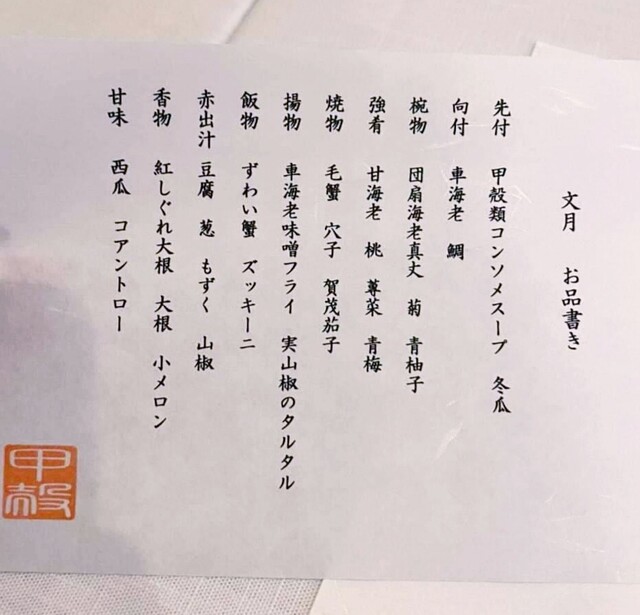 文月 お品書き
先付 甲殻類コンソメスープ 冬瓜
向付 車海老 鯛
椀物 団扇海老真丈 菊 青柚子
強肴 甘海老 桃 蓴菜 青梅
焼物 毛蟹 穴子 賀茂茄子
揚物 車海老味噌フライ 実山椒のタルタル
飯物 ずわい蟹 ズッキーニ
赤出汁 豆腐 葱 もずく 山椒
香物 紅しぐれ大根 大根 小メロン
甘味 西瓜 コアントロー
甲殻